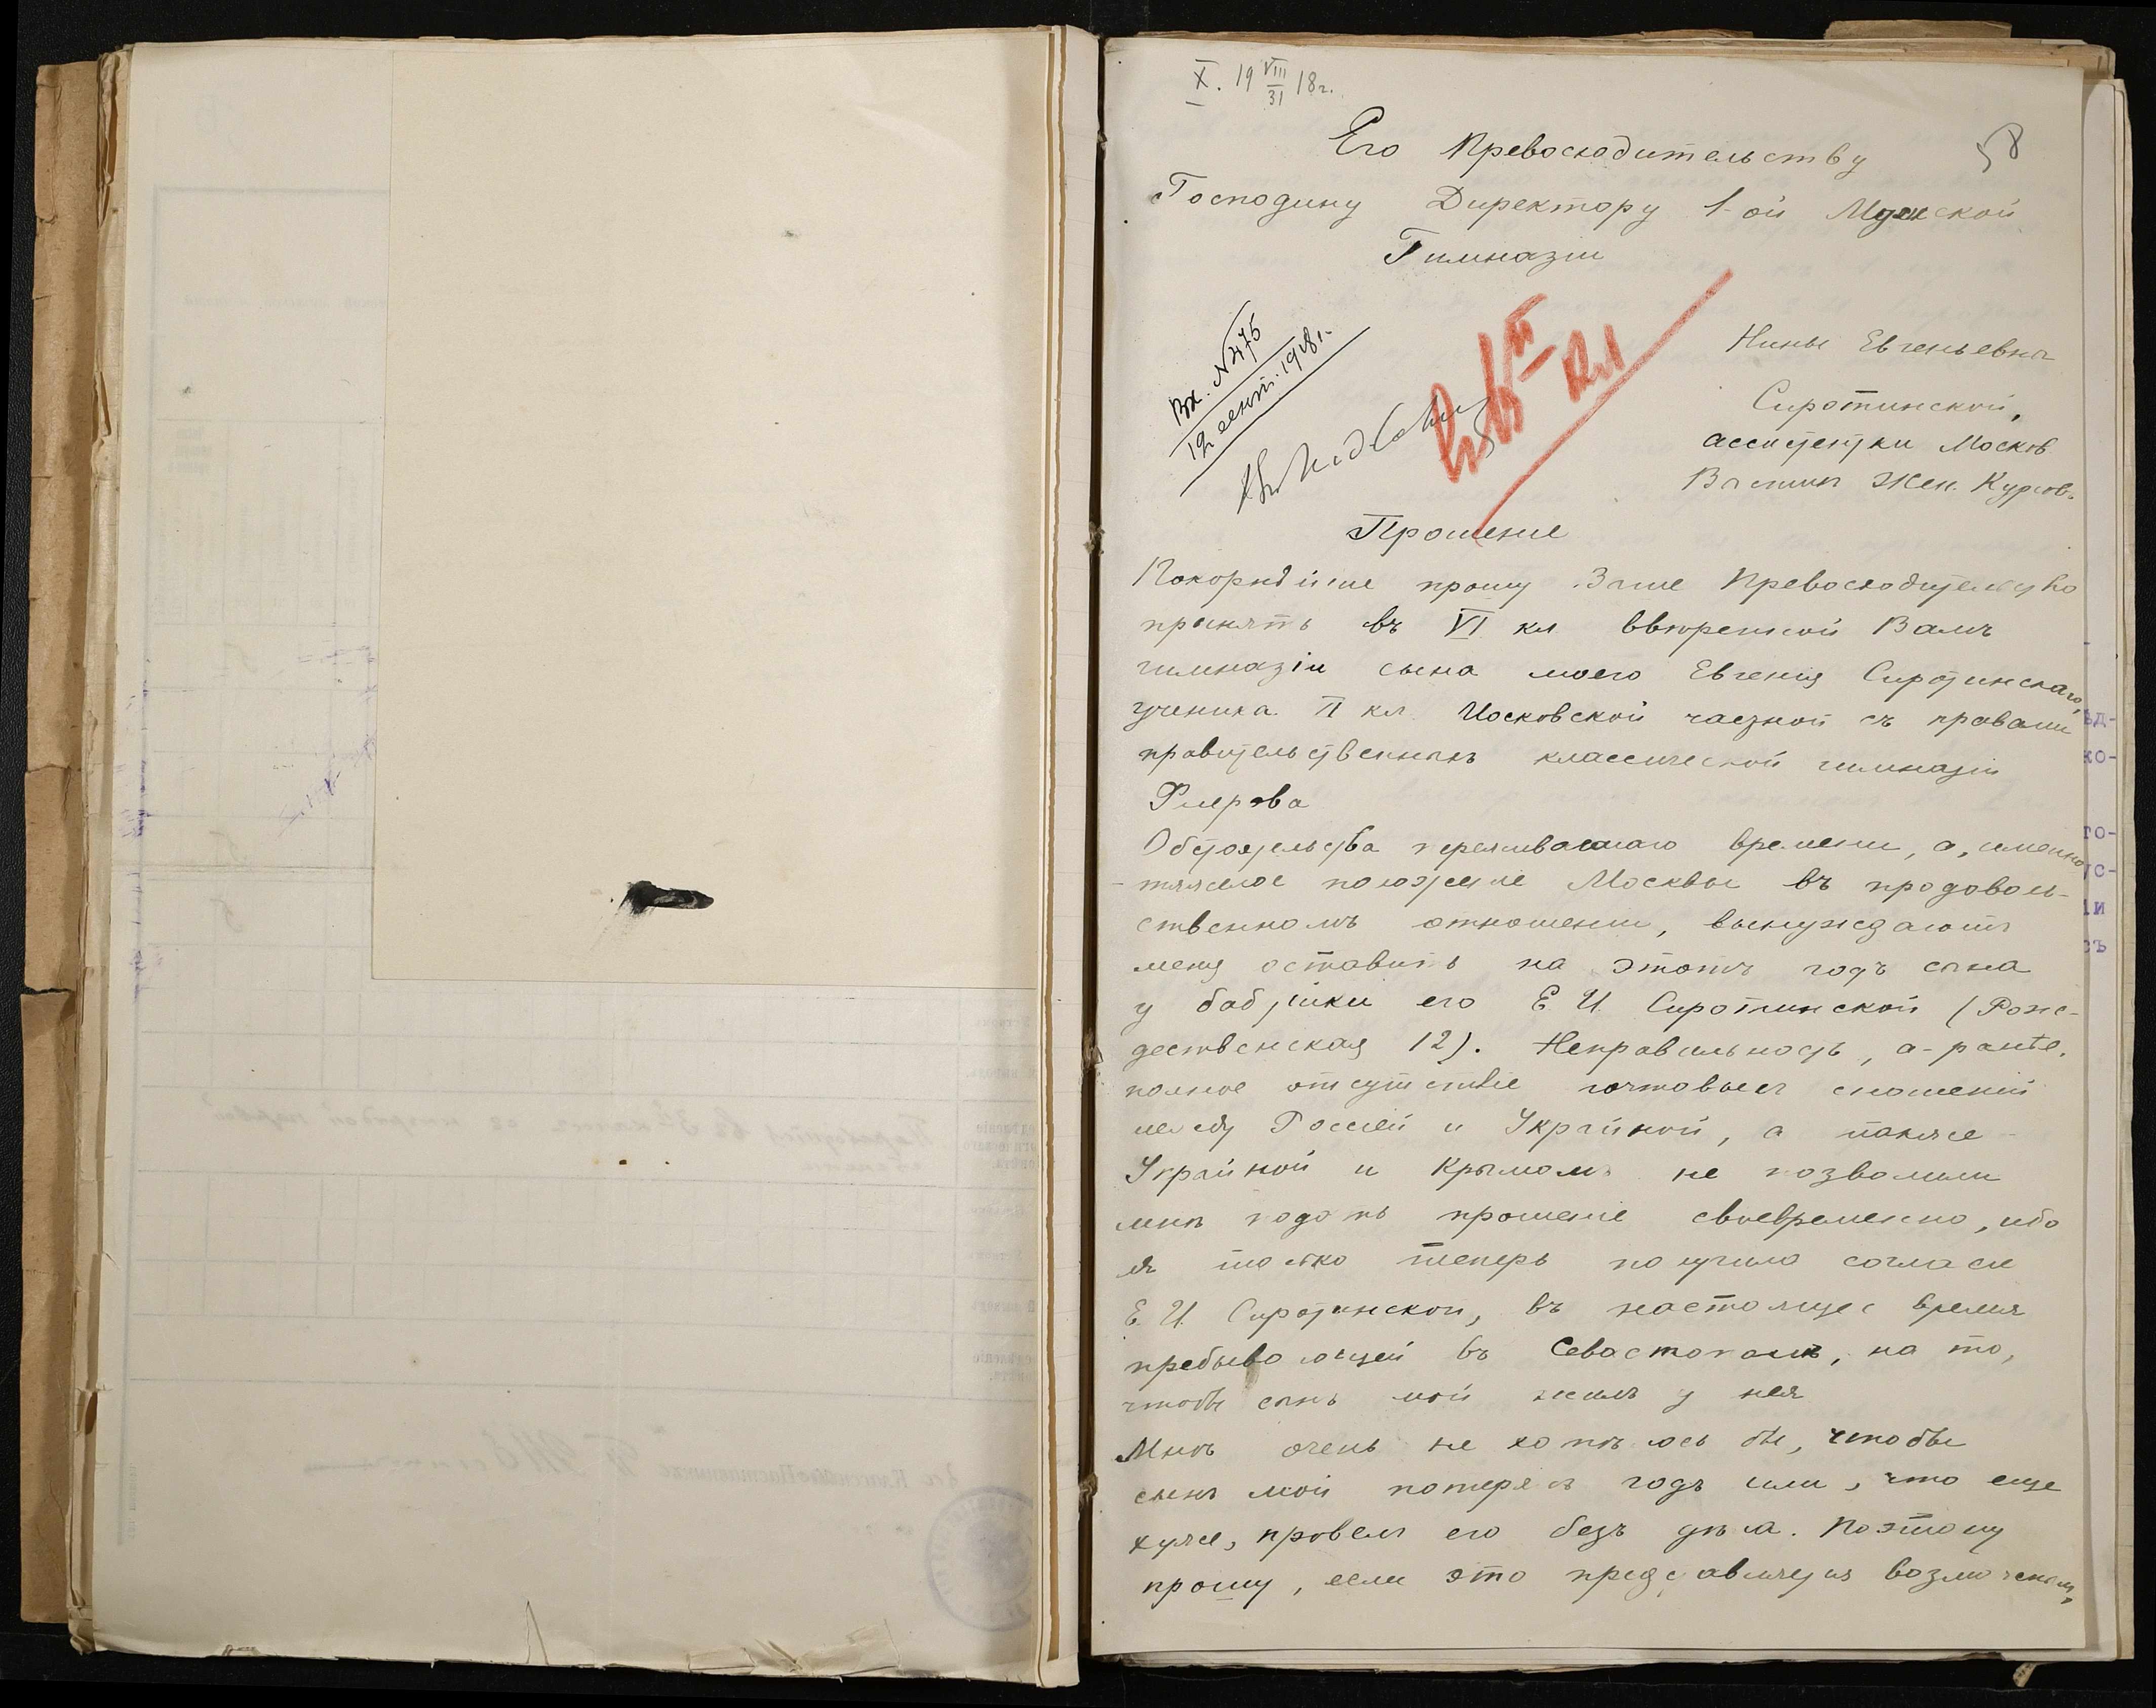 X. 19 VIII/31 18г.
58
Его Превосходительству
Господину Директору 1-ой Мужской
Гимназіи
Вх. № 476
12 сент. 1918 г.
Нины Евгеньевны
Сиротинской,
ассистентки Москов
Высших Жен. Курсовъ
Прошеніе
Покорнѣйше прошу Ваше Превосходительство
принять въ VI кл ввѣренной Вамъ
гимназіи сына моего Евгенія Сиротинскаго,
ученика VI кл Московской частной съ правами
правительственныхъ классической гимназіи
Флерова
Обстоятельства переживаемаго времени, а, именно
тяжелое положеніе Москвы въ продоволь-
ственномъ отношеніи, вынуждаютъ
меня оставить на этотъ годъ сына
у бабушки его Е И Сиротинской (Рож-
дественская 12). Неправильность, а-ранѣе,
полное отсутствіе почтовыхъ сношеній
между Россіей и Украйной, а также
Украйной и Крымомъ не позволили
мнѣ подать прошеніе своевременно, ибо
я только теперь получила согласіе
Е. И Сиротинской, въ настоящее время
пребывающей въ Севастополѣ, на то,
чтобы сынъ мой жилъ у нея
Мнѣ очень не хотѣлось бы, чтобы
сынъ мой потерялъ годъ или, что еще
хуже, провелъ его безъ дѣла. Поэтому
прошу, если это представляется возможнымъ,